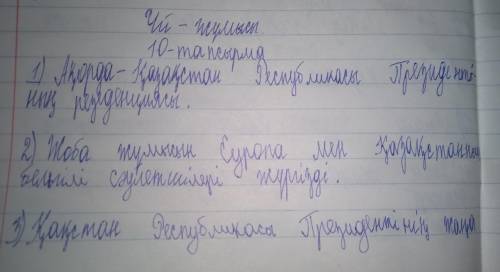 Үй - жұмысы
10-тапсырма
1) Ақорда - Қазақстан Республикасы Президенті-
нің резеденциясы.
2) Жоба жұмысын Еуропа мен Қазақстанның
белгілі сәулетшілері жүргізді.
3) Қақстан Республикасы Президентінің жаңа